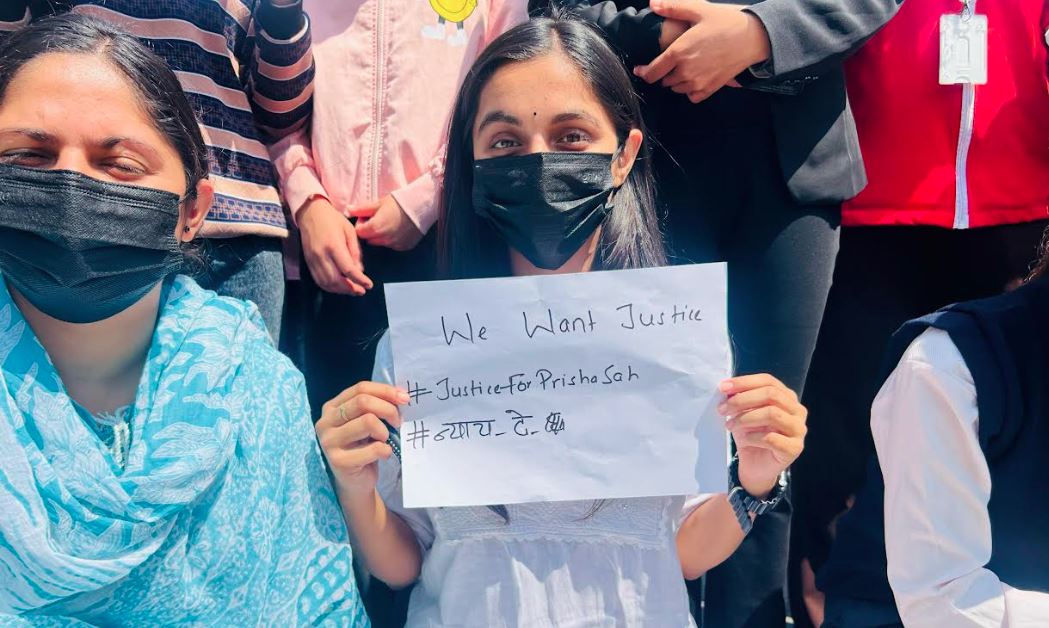 We Want Justice
#JusticeForPrishaSah
#न्याय_दे_